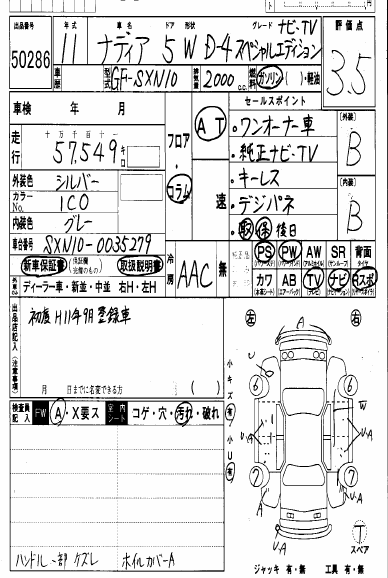 出品番号 年式 車名 ドア 形状 グレード ナビ・TV 評価点
50286 11 ナディア 5 W D-4 スペシャルエディション 3.5
車歴 型式 GF-SXN10 排気量 2000 c.c. 燃料 ガソリン・( )・軽油
車検 年 月
走行 十万千百十一 57,549 キロ
フロア・コラム
AT 速
セールスポイント
・ワンオーナー車
・純正ナビ・TV
・キーレス
・デジパネ
・取 保 後日
外装 B
内装 B
外装色 シルバー
カラーNo. 1C0
内装色 グレー
車台番号 SXN10-0035279
新車保証書 (保証欄完備のもの) 取扱説明書
ディーラー車・新並・中並 右H・左H
冷房 AAC 無
純正品
PS PW AW SR 背面タイヤ
カワ AB TV ナビ Rスポ
出品店記入(注意事項)
初度H11年9月登録車
月 日までに名変できる方 ( )
検査員記入 FW A・X要ス 室内シート コゲ・穴・汚れ・破れ
ハンドル一部ケズレ ホイルカバーA
左 右
小キズ有
小U有
U 6 6
A W
U-A U-A
7 7
A A
U-A
T スペア
ジャッキ 有・無 工具 有・無